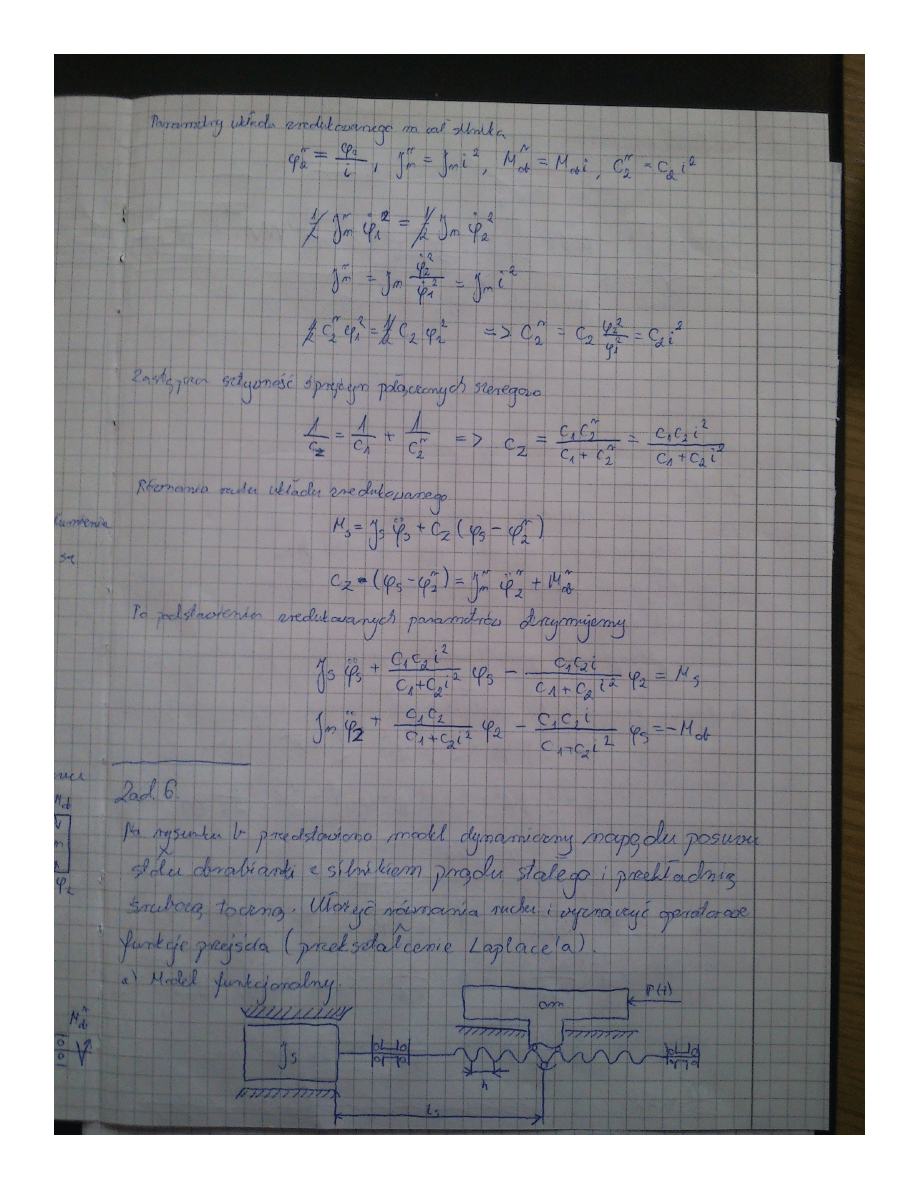 Parametry układu zredukowanego na wał silnika
φ₂ʳ = φ₂/i , Jₘʳ = Jₘ i² , M_obʳ = M_ob i , C₂ʳ = C₂ i²
1/2 Jₘʳ φ̇₁² = 1/2 Jₘ φ̇₂²
Jₘʳ = Jₘ φ̇₂²/φ̇₁² = Jₘ i²
1/2 C₂ʳ φ₁² = 1/2 C₂ φ₂² => C₂ʳ = C₂ φ₂²/φ₁² = C₂ i²
Zastępcza sztywność sprężyn połączonych szeregowo
1/C_z = 1/C₁ + 1/C₂ʳ => C_z = C₁C₂ʳ/(C₁ + C₂ʳ) = C₁C₂ i²/(C₁ + C₂ i²)
Równania ruchu układu zredukowanego
M_s = J_s φ̈_s + C_z (φ_s − φ₂ʳ)
łumienia
są
C_z (φ_s − φ₂ʳ) = Jₘʳ φ̈₂ʳ + M_obʳ
Po podstawieniu zredukowanych parametrów otrzymujemy
J_s φ̈_s + C₁C₂ i²/(C₁ + C₂ i²) φ_s − C₁C₂ i/(C₁ + C₂ i²) φ₂ = M_s
Jₘ φ̈₂ + C₁C₂/(C₁ + C₂ i²) φ₂ − C₁C₂ i/(C₁ + C₂ i²) φ_s = −M_ob
Zad. 6.
M_ob
φ₂
Na rysunku b przedstawiono model dynamiczny napędu posuwu
stołu obrabiarki z silnikiem prądu stałego i przekładnią
śrubową toczną. Ułożyć równania ruchu i wyznaczyć operatorowe
funkcje przejścia (przekształcenie Laplace'a).
a) Model funkcjonalny.
M_obʳ
J_s
om
P(t)
h
l_s